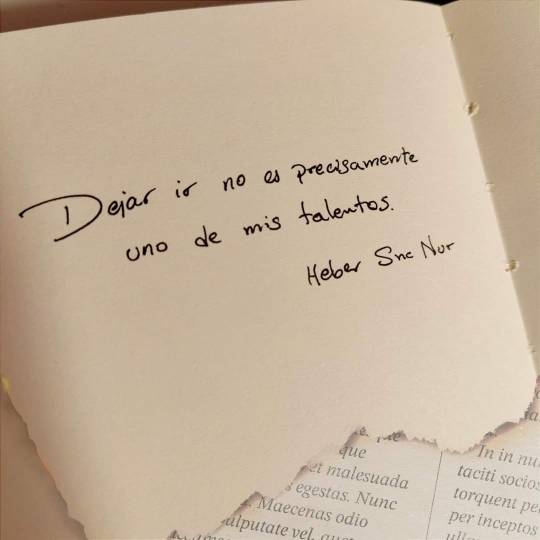 Dejar ir no es precisamente
uno de mis talentos.
Heber Snc Nur
que
et malesuada
egestas. Nunc
Maecenas odio
vulputate vel,
In in
taciti
torquent
per inceptos